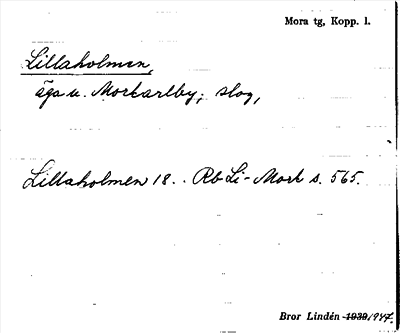 Mora tg, Kopp. l.
Lillaholmen,
äga u. Morkarlby; slog,
Lillaholmen 18. . Rb Li-Mork s. 565.
Bror Lindén 1939, 1947.